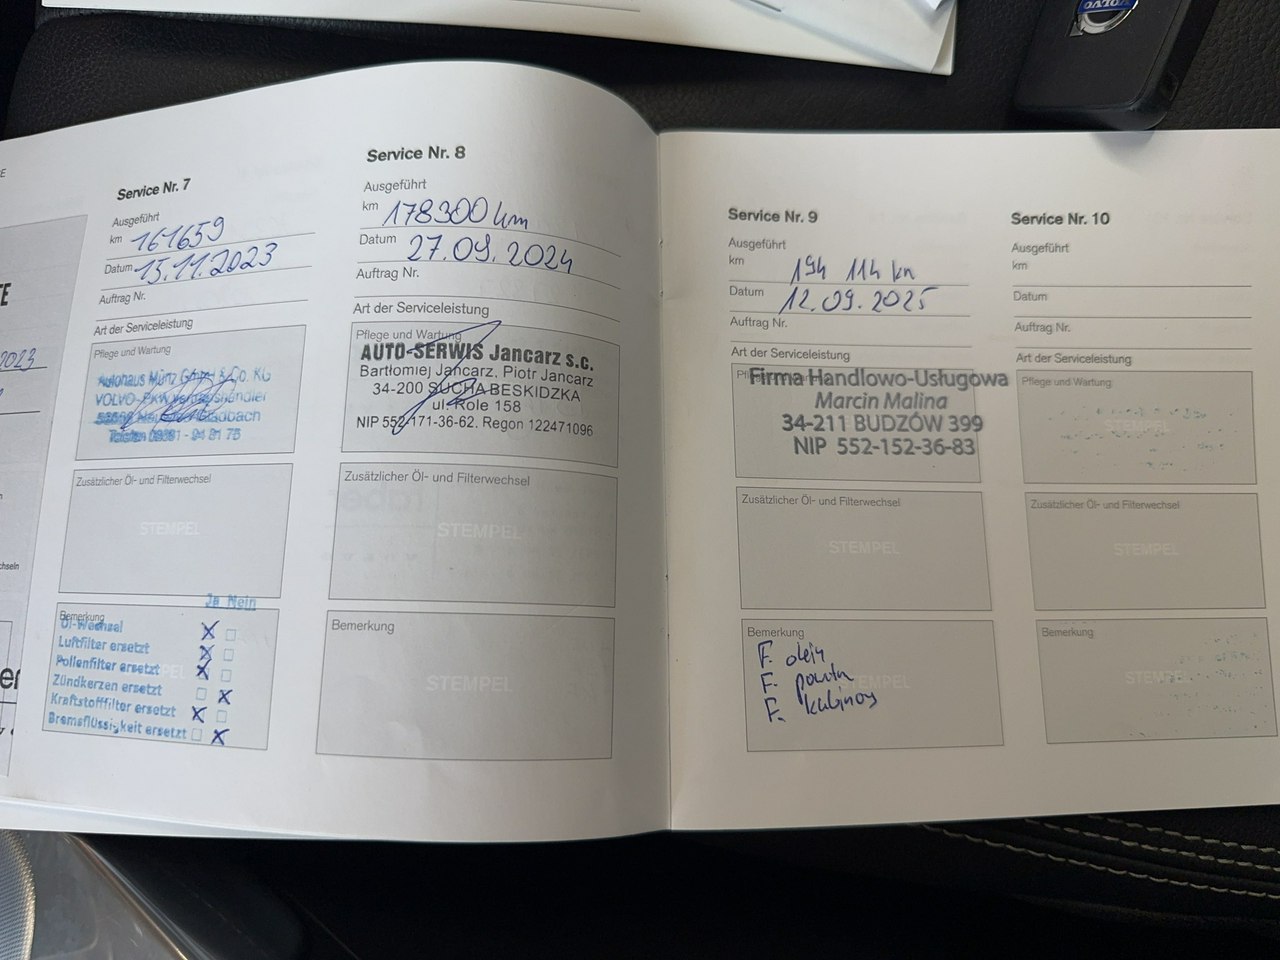 VOLVO
Service Nr. 7
Ausgeführt
km 161659
Datum 15.11.2023
Auftrag Nr.
Art der Serviceleistung
Pflege und Wartung
Autohaus Münz GmbH & Co. KG
VOLVO-
Telefon
Zusätzlicher Öl- und Filterwechsel
STEMPEL
Ja Nein
Bemerkung
Öl-Wechsel
Luftfilter ersetzt
Pollenfilter ersetzt
Zündkerzen ersetzt
Kraftstofffilter ersetzt
Bremsflüssigkeit ersetzt
Service Nr. 8
Ausgeführt
km 178300 km
Datum 27.09.2024
Auftrag Nr.
Art der Serviceleistung
Pflege und Wartung
AUTO-SERWIS Jancarz s.c.
Bartłomiej Jancarz, Piotr Jancarz
34-200 SUCHA BESKIDZKA
ul. Role 158
NIP 552-171-36-62, Regon 122471096
Zusätzlicher Öl- und Filterwechsel
STEMPEL
Bemerkung
STEMPEL
Service Nr. 9
Ausgeführt
km 194 114 km
Datum 12.09.2025
Auftrag Nr.
Art der Serviceleistung
Firma Handlowo-Usługowa
Marcin Malina
34-211 BUDZÓW 399
NIP 552-152-36-83
Zusätzlicher Öl- und Filterwechsel
STEMPEL
Bemerkung
F. oleju
F. powietrza
F. kabinowy
Service Nr. 10
Ausgeführt
km
Datum
Auftrag Nr.
Art der Serviceleistung
Pflege und Wartung
STEMPEL
Zusätzlicher Öl- und Filterwechsel
STEMPEL
Bemerkung
STEMPEL